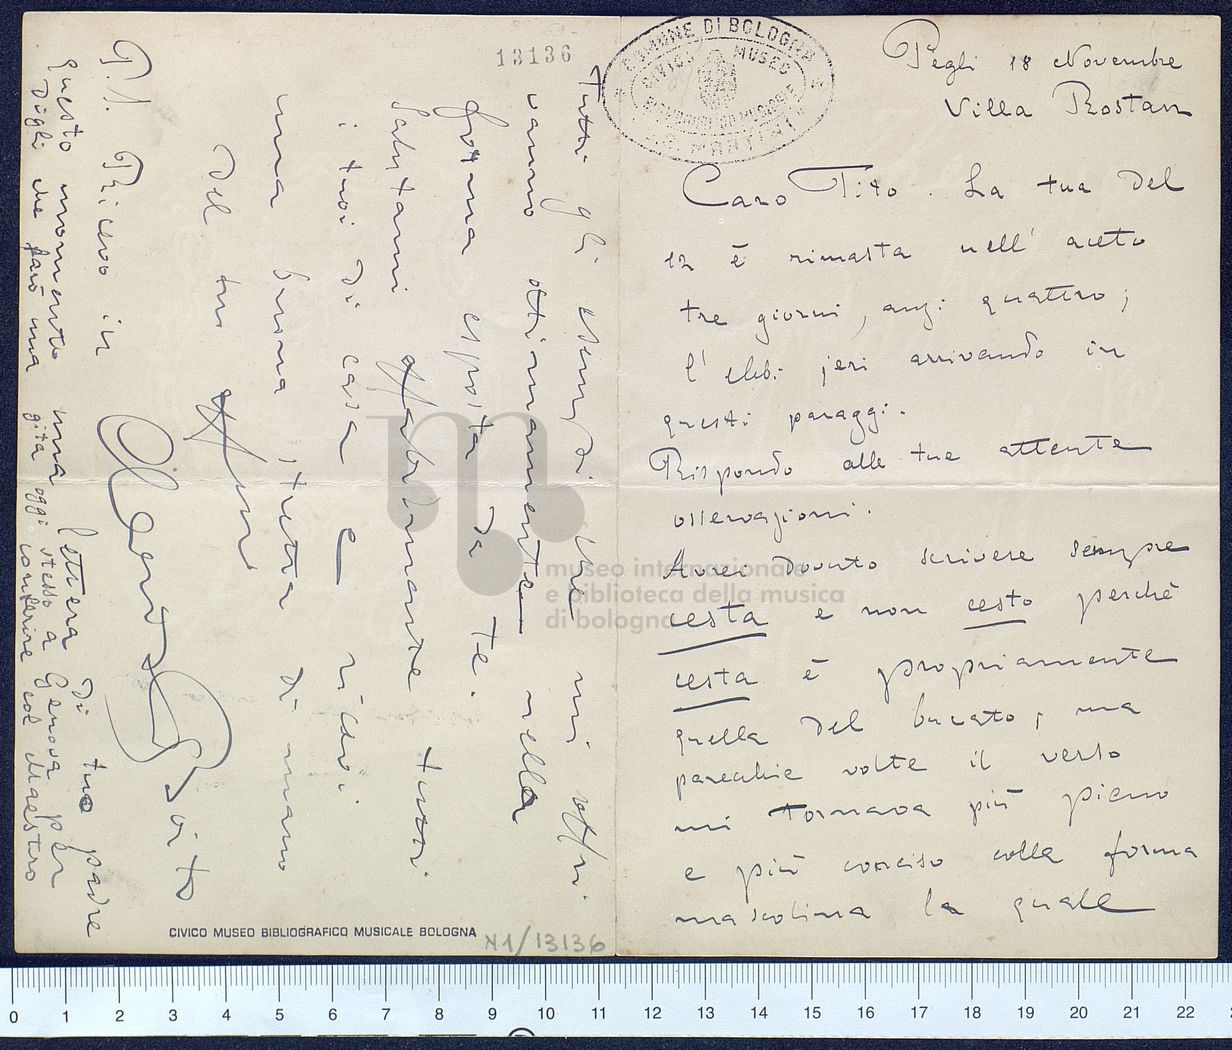 Pegli 18 Novembre
Villa Rostan
Caro Tito. La tua del
12 è rimasta nell' aceto
tre giorni, anzi quattro;
l' ebbi jeri arrivando in
questi paraggi.
Rispondo alle tue attente
osservazioni.
Avrei dovuto scrivere sempre
cesta e non cesto perchè
cesta è propriamente
quella del bucato; ma
parecchie volte il verso
mi tornava più pieno
e più conciso colla forma
mascolina la quale
Tutti gli esempi che mi offri
vanno ottimamente nella
forma esposta da te.
Salutami affabilmente tutti
i tuoi di casa e ricevi
una buona stretta di mano
del tuo aff.mo
Arrigo Boito
P.S. Ricevo in
questo momento una lettera di tuo padre
Digli che farò una gita oggi stesso a Genova per
conferire col Maestro
13136
COMUNE DI BOLOGNA
CIVICO MUSEO
BIBLIOGRAFICO MUSICALE
G.B. MARTINI
museo internazionale
e biblioteca della musica
di bologna
CIVICO MUSEO BIBLIOGRAFICO MUSICALE BOLOGNA
N1/13136
0 1 2 3 4 5 6 7 8 9 10 11 12 13 14 15 16 17 18 19 20 21 22